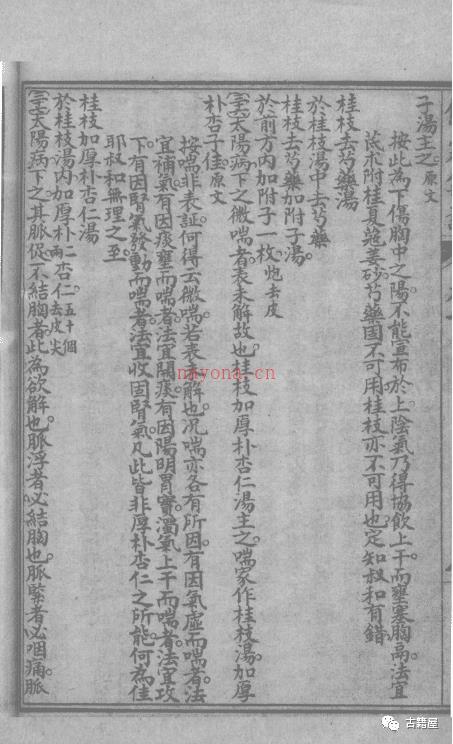 子湯主之原文
按此為下傷胸中之陽不能宣布於上陰氣乃得協飲上干而壅塞胸鬲法宜
茋朮附桂夏薤姜砂芍藥固不可用桂枝亦不可用也定知叔和有錯
桂枝去芍藥湯
於桂枝湯中去芍藥
桂枝去芍藥加附子湯
於前方內加附子一枚炮去皮
太陽病下之微喘者表未解故也桂枝加厚朴杏仁湯主之喘家作桂枝湯加厚
朴杏子佳原文
按喘非表証何得云微喘若表未解也況喘亦各有所因有因氣虛而喘者法
宜補氣有因痰壅而喘者法宜開痰有因陽明胃實濁氣上干而喘者法宜攻
下有因腎氣發動而喘者法宜收固腎氣凡此皆非厚朴杏仁之所能何為佳
耶叔和無理之至
桂枝加厚朴杏仁湯
於桂枝湯內加厚朴二兩杏仁五十個去皮尖
太陽病下之其脈促不結胸者此為欲解也脈浮者必結胸也脈緊者必咽痛脈
nayona.cn
古籍屋